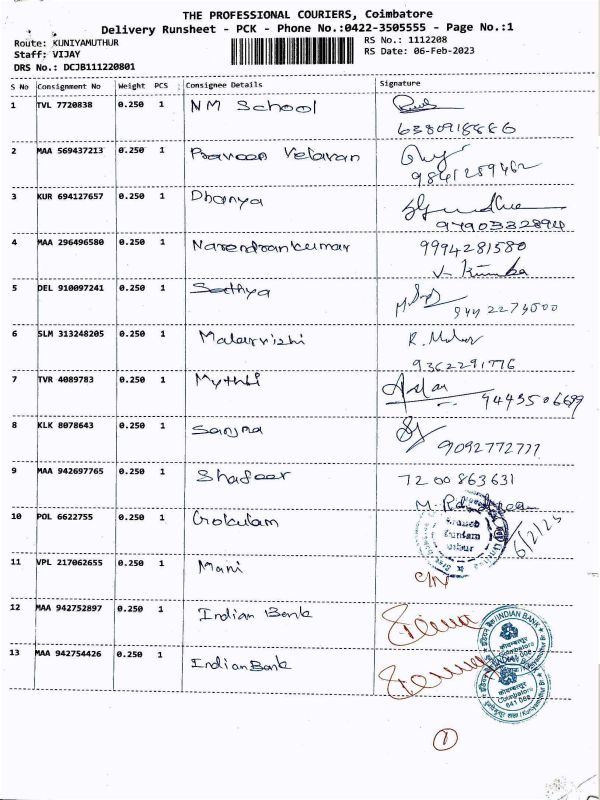 THE PROFESSIONAL COURIERS, Coimbatore
Delivery Runsheet - PCK - Phone No.:0422-3505555 - Page No.:1
Route: KUNIYAMUTHUR RS No.: 1112208
Staff: VIJAY RS Date: 06-Feb-2023
DRS No.: DCJB111220801
S No Consignment No Weight PCS Consignee Details Signature
1 TVL 7720838 0.250 1 NM School
6380918886
2 MAA 569437213 0.250 1 Praveen Velavan
9841259462
3 KUR 694127657 0.250 1 Dhanya
9790332894
4 MAA 296496580 0.250 1 Narendrankumar 9994281580
5 DEL 910097241 0.250 1 Sathya
9442274000
6 SLM 313248205 0.250 1 Malarvizhi
9362291776
7 TVR 4089783 0.250 1 Mythli
9443506699
8 KLK 8078643 0.250 1 Sanjna
9092772777
9 MAA 942697765 0.250 1 Shafeer 7200863631
10 POL 6622755 0.250 1 Gokulam
11 VPL 217062655 0.250 1 Mani
12 MAA 942752897 0.250 1 Indian Bank
INDIAN BANK
13 MAA 942754426 0.250 1 Indian Bank
INDIAN BANK
1